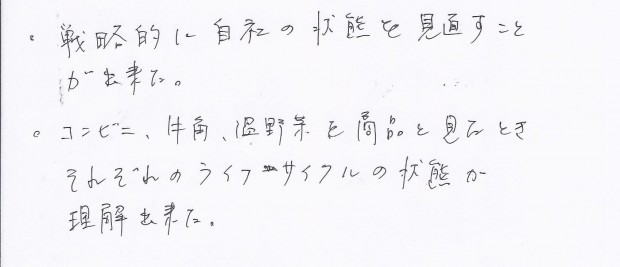 ・戦略的に自社の状態を見直すこと
が出来た。
・コンビニ、牛角、温野菜を商品と見たとき
それぞれのライフサイクルの状態が
理解出来た。